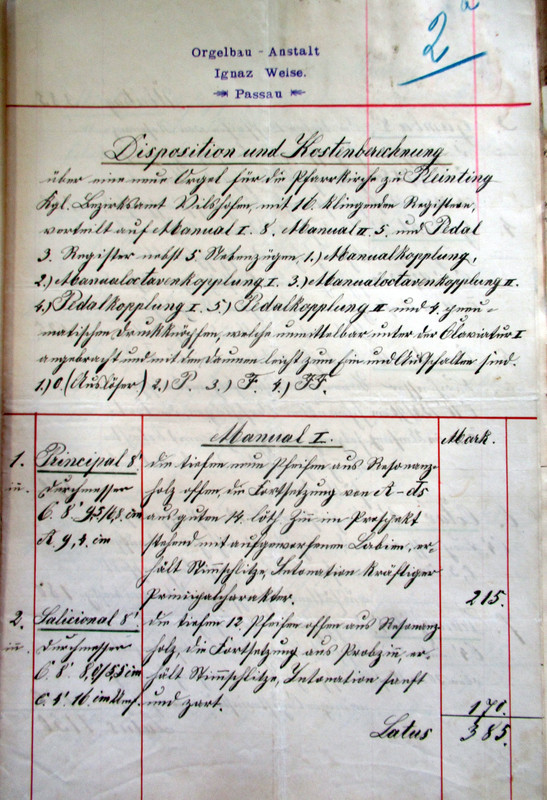 2a
Orgelbau - Anstalt
Ignaz Weise.
Passau
Disposition und Kostenberechnung
über eine neue Orgel für die Pfarrkirche zu Pleinting
Kgl. Bezirksamt Vilshofen, mit 16 klingenden Registern,
verteilt auf Manual I. 8. Manual II. 5. und Pedal
3. Register nebst 5 Nebenzügen, 1.) Manualkopplung,
2.) Manualoctavenkopplung I. 3.) Manualoctavenkopplung II.
4.) Pedalkopplung I. 5.) Pedalkopplung II und 4. pneu-
matischen Druckknöpfen, welche unmittelbar unter der Claviatur I
angebracht und mit dem Daumen leicht zum Ein und Ausschalten sind.
1.) 0. (Auslöser) 2.) P. 3.) F. 4.) FF.
Manual I. Mark.
1. Principal 8' die tiefen neun Pfeifen aus Resonanz-
Durchmesser holz offen, die Fortsetzung von A-
C. 8' cm aus guten 14. löth Zinn im Prospekt
A 9,4 cm stehend mit aufgeworfenen Labien, er-
hält Stimmschlitze, Intonation kräftiger
Prinzipalcharakter. 215.
2. Salicional 8' die tiefen 12. Pfeifen offen aus Resonanz-
Durchmesser holz, die Fortsetzung aus Probzinn, er-
C. 8' cm hält Stimmschlitze, Intonation sanft
C. 4' 16 cm Umf. und zart. 170.
Latus 385.